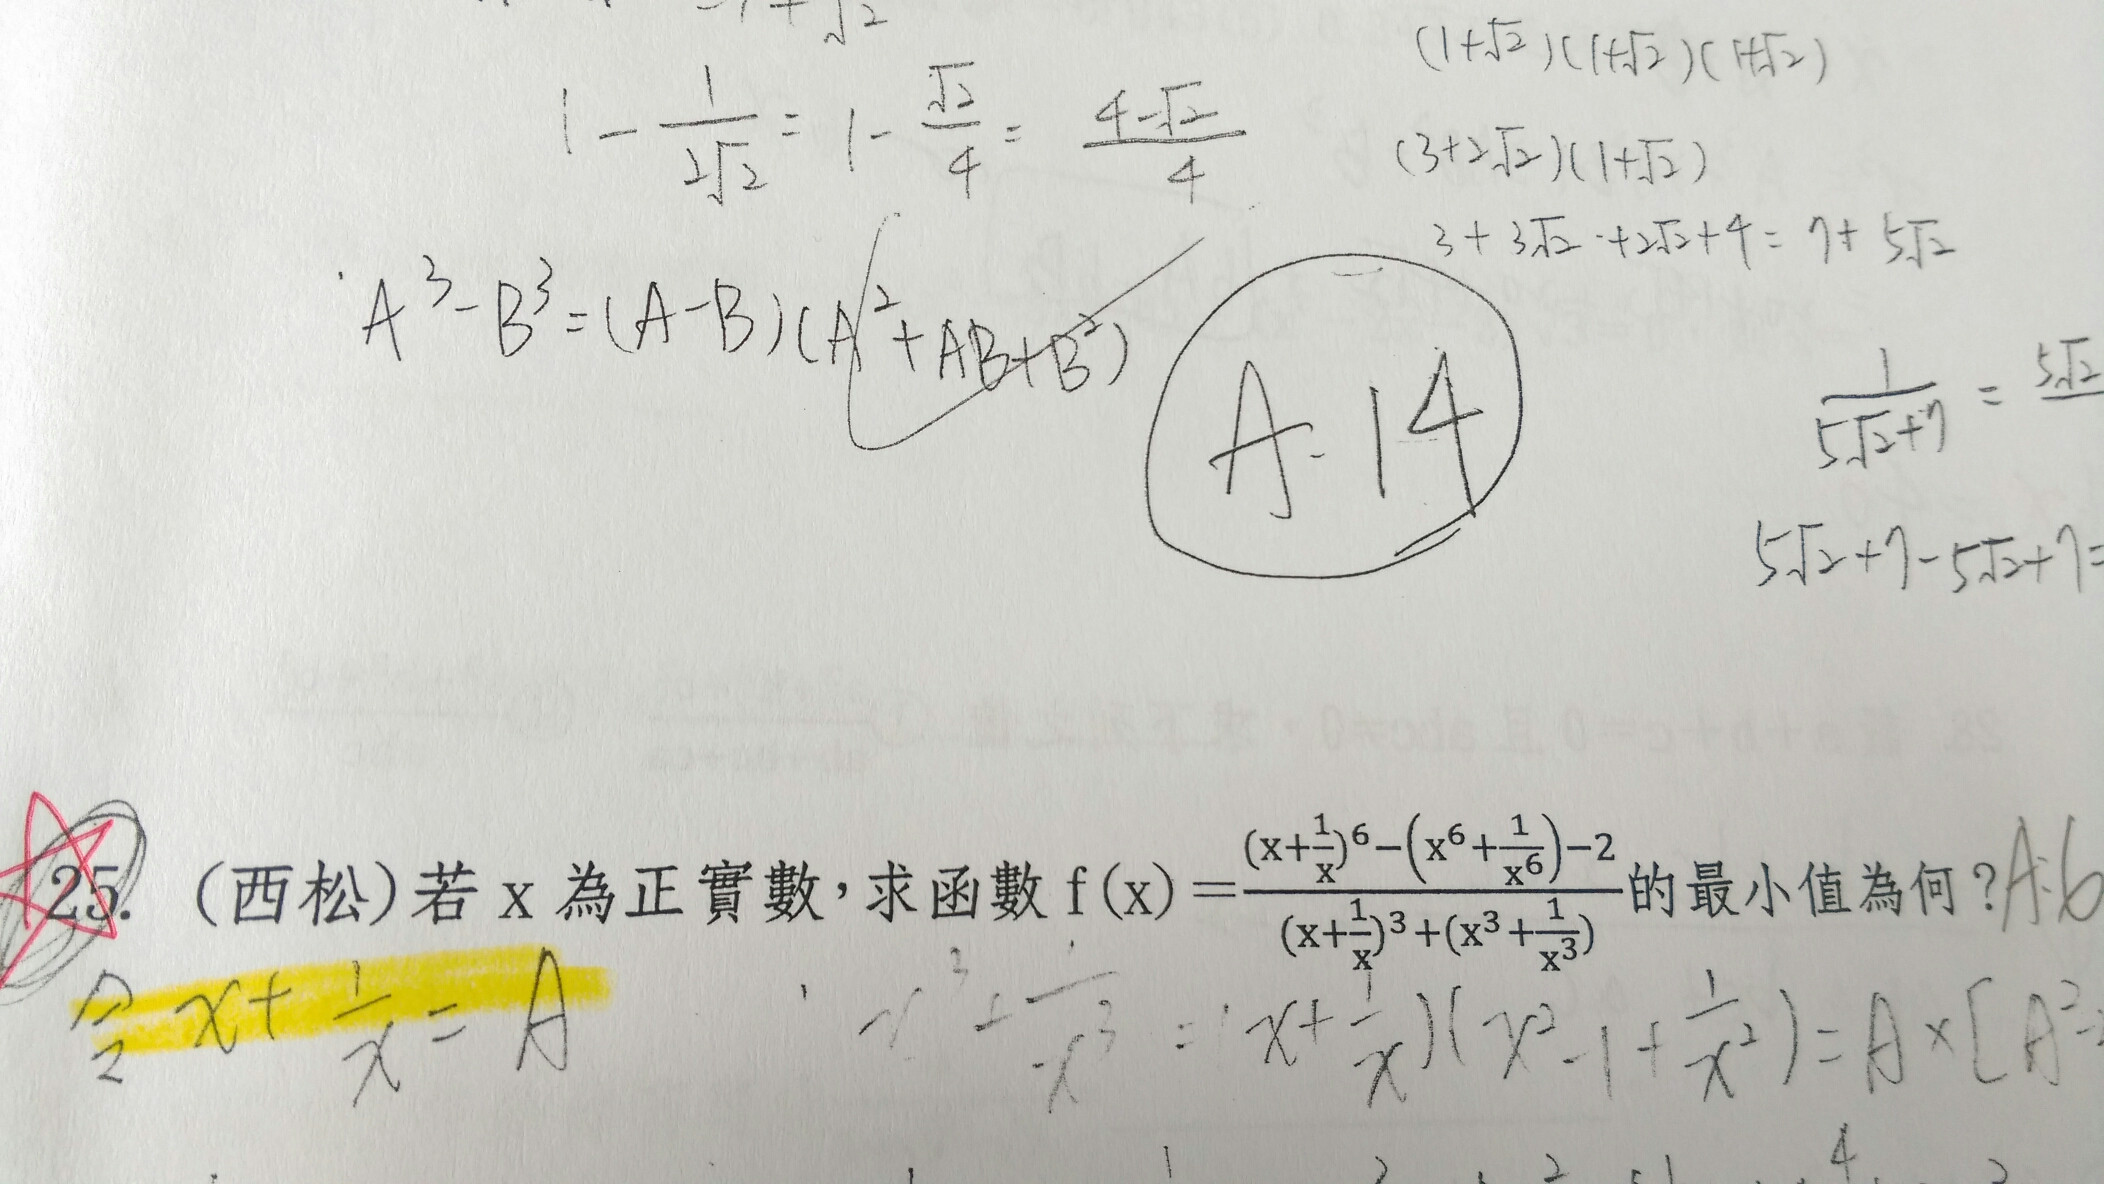 -1+√2
(1+√2)(1+√2)(1+√2)
1 - 1/(2√2) = 1 - √2/4 = (4-√2)/4
(3+2√2)(1+√2)
3+3√2+2√2+4 = 7+5√2
A³-B³=(A-B)(A²+AB+B²)
A:14
1/(5√2+7) = 5√2
5√2+7-5√2+7=
25. (西松)若 x 為正實數,求函數 f(x)=((x+1/x)⁶-(x⁶+1/x⁶)-2)/((x+1/x)³+(x³+1/x³))的最小值為何?A:6
令 x+1/x = A
x³+1/x³ = (x+1/x)(x²-1+1/x²) = A×[A²-